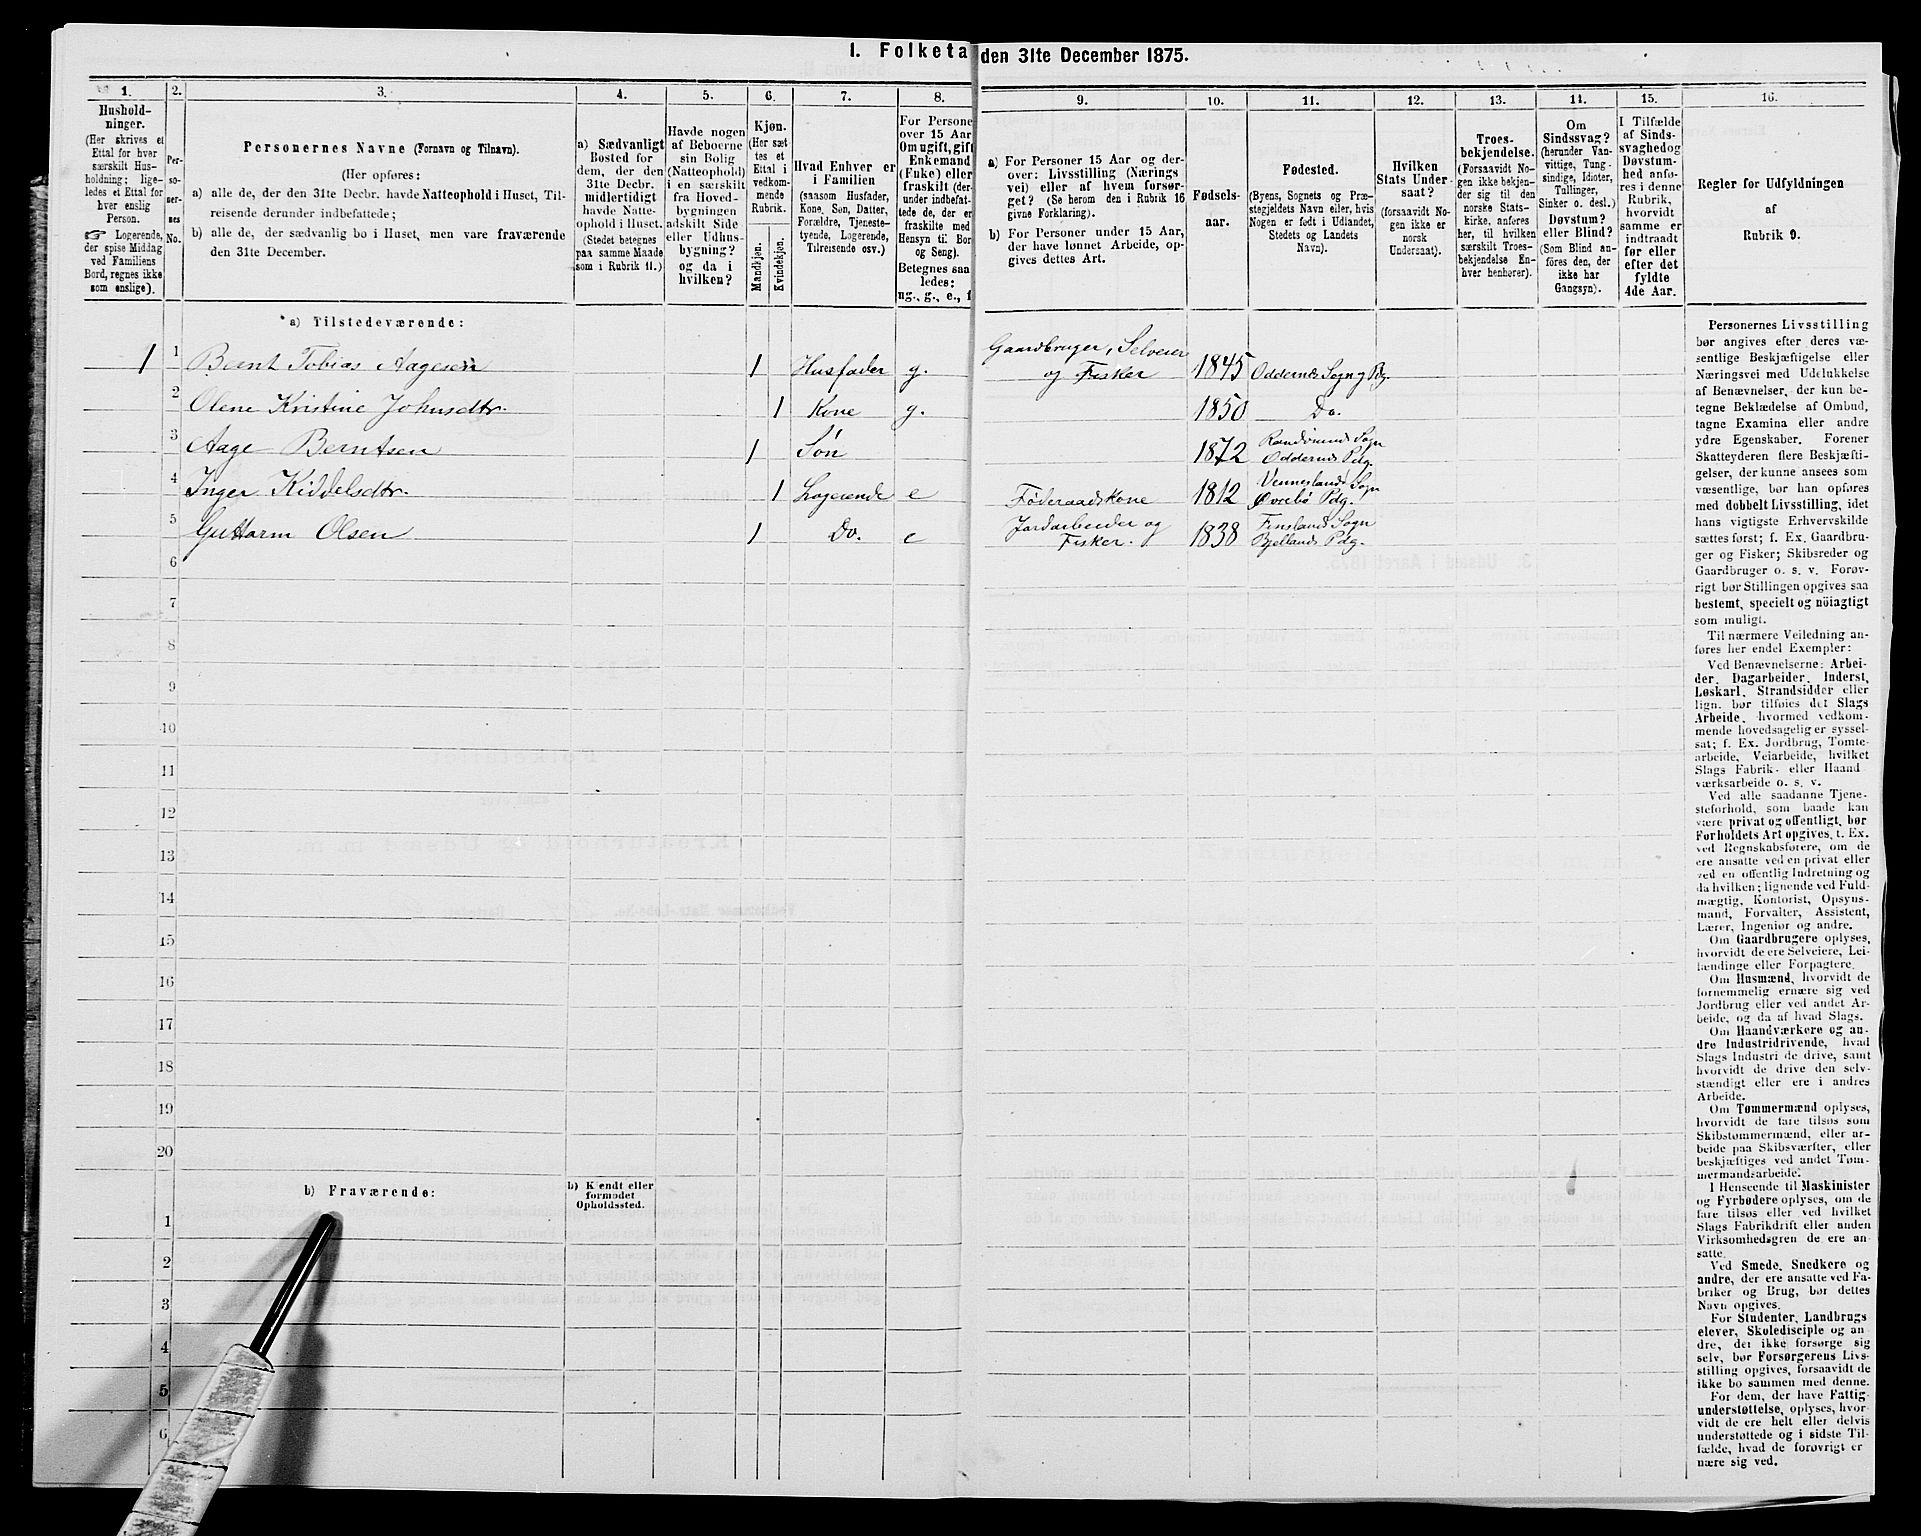 1. Folketa
den 31te December 1875.
1.
2.
3.
4.
5.
6.
7.
8.
9.
10.
11.
12.
13.
14.
15.
16.
Hushold-
ninger.
(Her skrives et
Ettal for hver
særskilt Hus-
holdning; lige-
ledes et Ettal for
hver enslig
Person.
☞ Logerende,
der spise Middag
ved Familiens
Bord, regnes ikke
som enslige).
Per-
so-
ner-
nes
No.
Personernes Navne (Fornavn og Tilnavn).
(Her opføres:
a) alle de, der den 31te Decbr. havde Natteophold i Huset, Til-
reisende derunder indbefattede;
b) alle de, der sædvanlig bo i Huset, men vare fraværende
den 31te December.
a) Sædvanligt
Bosted for
dem, der den
31te Decbr.
midlertidigt
havde Natte-
ophold i Huset.
(Stedet betegnes
paa samme Maade
som i Rubrik 11.)
Havde nogen
af Beboerne
sin Bolig
(Natteophold)
i en særskilt
fra Hoved-
bygningen
adskilt Side
eller Udhus-
bygning?
og da i
hvilken?
Kjøn.
(Her sæt
tes et
Ettal i
vedkom-
mende
Rubrik.
Mandkjøn.
Kvindekjøn.
Hvad Enhver er
i Familien
(saasom Husfader,
Kone, Søn, Datter,
Forældre, Tjeneste-
tyende, Logerende,
Tilreisende osv.)
For Persone
over 15 Aar
Om ugift, gift
Enkemand
(Enke) eller
fraskilt (der-
under indbefat-
tede de, der er
fraskilte med
Hensyn til Bor
og Seng).
Betegnes saa
ledes:
ug., g., e., f
a) For Personer 15 Aar og der-
over: Livsstilling (Nærings
vei) eller af hvem forsør-
get? (Se herom den i Rubrik 16
givne Forklaring).
b) For Personer under 15 Aar,
der have lønnet Arbeide, op-
gives dettes Art.
Fødsels-
aar.
Fødested.
(Byens, Sognets og Præ-
stegjeldets Navn eller, hvis
Nogen er født i Udlandet,
Stedets og Landets
Navn).
Hvilken
Stats Under-
saat?
(forsaavidt No-
gen ikke er
norsk
Undersaat).
Troes-
bekjendelse.
(Forsaavidt No-
gen ikke bekjen-
der sig til den
norske Stats-
kirke, anføres
her, til hvilken
særskilt Troes-
bekjendelse En-
hver henhører).
Om
Sindssvag?
(herunder Van-
vittige, Tung-
sindige, Idioter,
Tullinger,
Sinker o. desl.)
Døvstum?
eller Blind?
(Som Blind an-
føres den, der
ikke har
Gangsyn).
I Tilfælde
af Sinds-
svaghedog
Døvstum-
hed anfø-
res i denne
Rubrik,
hvorvidt
samme er
indtraadt
før eller
efter det
fyldte
4de Aar.
Regler for Udfyldningen
af
Rubrik 9.
a) Tilstedeværende:
1 1 Bernt Tobias Aagesen 1 Husfader g. Gaardbruger, Selveier
og Fisker 1845 Oddernes Sogn og Pdg.
2 Olene Kristine Johnsdtr. 1 Kone g. 1850 Do.
3 Aage Berntsen 1 Søn 1872 Randøsund Sogn
Oddernes Pdg.
4 Inger Kiddelsdtr. 1 Logerende e Föderaadskone 1812 Venneslands Sogn
Øvrebø Pdg.
5 Guttorm Olsen 1 Do. e Jordarbeider og
Fisker. 1838 Finslands Sogn
Bjellands Pdg.
6
7
8
9
10
11
12
13
14
15
16
17
18
19
20
b) Fraværende:
b) Kjendt eller
formodet
Opholdssted.
1
2
3
4
5
6
Personernes Livsstilling
bør angives efter deres væ-
sentlige Beskjæftigelse eller
Næringsvei med Udelukkelse
af Benævnelser, der kun be-
tegne Beklædelse af Ombud,
tagne Examina eller andre
ydre Egenskaber. Forener
Skatteyderen flere Beskjæfti-
gelser, der kunne ansees som
væsentlige, bør han opføres
med dobbelt Livsstilling, idet
hans vigtigste Erhvervskilde
sættes først; f. Ex. Gaardbru-
ger og Fisker; Skibsreder og
Gaardbruger o. s. v. Forøv-
rigt bør Stillingen opgives saa
bestemt, specielt og nöiagtigt
som muligt.
Til nærmere Veiledning an-
føres her endel Exempler:
Ved Benævnelserne: Arbei-
der, Dagarbeider, Inderst,
Løskarl, Strandsidder eller
lign. bør tilføies det Slags
Arbeide, hvormed vedkom-
mende hovedsagelig er syssel-
sat; f. Ex. Jordbrug, Tomte-
arbeide, Veiarbeide, hvilket
Slags Fabrik- eller Haand
værksarbeide o. s. v.
Ved alle saadanne Tjene-
steforhold, som baade kan
være privat og offentligt, bør
Forholdets Art opgives, t. Ex.
ved Regnskabsførere, om de
ere ansatte ved en privat eller
ved en offentlig Indretning og
da hvilken; lignende ved Fuld-
mægtig, Kontorist, Opsyns-
mand, Forvalter, Assistent,
Lærer, Ingeniør og andre.
Om Gaardbrugere oplyses,
hvorvidt de ere Selveiere, Lei-
lændinge eller Forpagtere.
Om Husmænd, hvorvidt de
fornemmelig ernære sig ved
Jordbrug eller ved andet Ar-
beide, og da af hvad Slags.
Om Haandværkere og an-
dre Industridrivende, hvad
Slags Industri de drive, samt
hvorvidt de drive den selv-
stændigt eller ere i andres
Arbeide.
Om Tømmermænd oplyses,
hvorvidt de fare tilsøs som
Skibstømmermænd, eller ar-
beide paa Skibsværfter, eller
beskjæftiges ved andet Tøm-
mermandsarbeide.
I Henseende til Maskinister
og Fyrbødere oplyses, om de
fare tilsøs eller ved hvilket
Slags Fabrikdrift eller anden
Virksomhedsgren de ere an-
satte.
Ved Smede, Snedkere og
andre, der ere ansatte ved Fa-
briker og Brug, bør dettes
Navn opgives.
For Studenter, Landbrugs
elever, Skoledisciple og an-
dre, der ikke forsørge sig
selv, bør Forsørgerens Livs-
stilling opgives, forsaavidt de
ikke bo sammen med denne.
For dem, der have Fattig-
understøttelse, oplyses, hvor-
vidt de ere helt eller delvis
understøttede og i sidste Til-
fælde, hvad de forøvrigt er
nære sig ved.